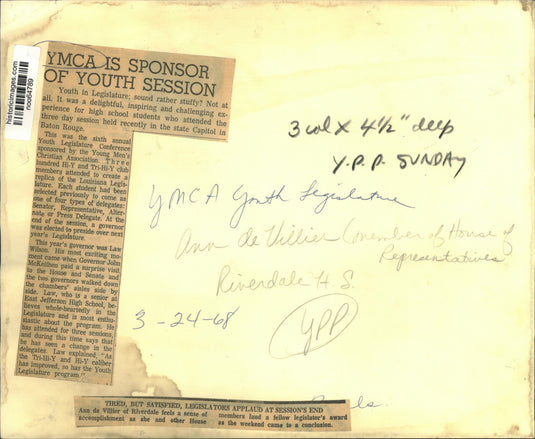 historicimages.com
noo64789
YMCA IS SPONSOR
OF YOUTH SESSION
Youth in Legislature; sound rather stuffy? Not at
all. It was a delightful, inspiring and challenging ex-
perience for high school students who attended the
three day session held recently in the state Capitol in
Baton Rouge.
This was the sixth annual
Youth Legislature Conference
sponsored by the Young Men's
Christian Association. Three
hundred Hi-Y and Tri-Hi-Y club
members attended to create a
replica of the Louisiana Legis-
lature. Each student had been
selected previously to come as
one of four types of delegates:
Senator, Representative, Alter-
nate or Press Delegate. At the
end of the session, a governor
was elected to preside over next
year's Legislature.
This year's governor was Law
Wilson. His most exciting mo-
ment came when Governor John
McKeithen paid a surprise visit
to the House and Senate and
the two governors walked down
the chambers' aisles side by
side. Law, who is a senior at
East Jefferson High School, be-
lieves whole-heartedly in the
Legislature and is most enthu-
siastic about the program. He
has attended for three sessions,
and during this time says that
he has seen a change in the
delegates. Law explained, "As
the Tri-Hi-Y and Hi-Y caliber
has improved, so has the Youth
Legislature program."
3 col X 4 1/2" deep
Y.P.P. SUNDAY
YMCA Youth Legislature
Ann de Villier (member of House of
Representatives
Riverdale H. S.
3-24-68
YPP
TIRED, BUT SATISFIED, LEGISLATORS APPLAUD AT SESSION'S END
Ann de Villier of Riverdale feels a sense of
accomplishment as she and other House
members laud a fellow legislator's award
as the weekend came to a conclusion.